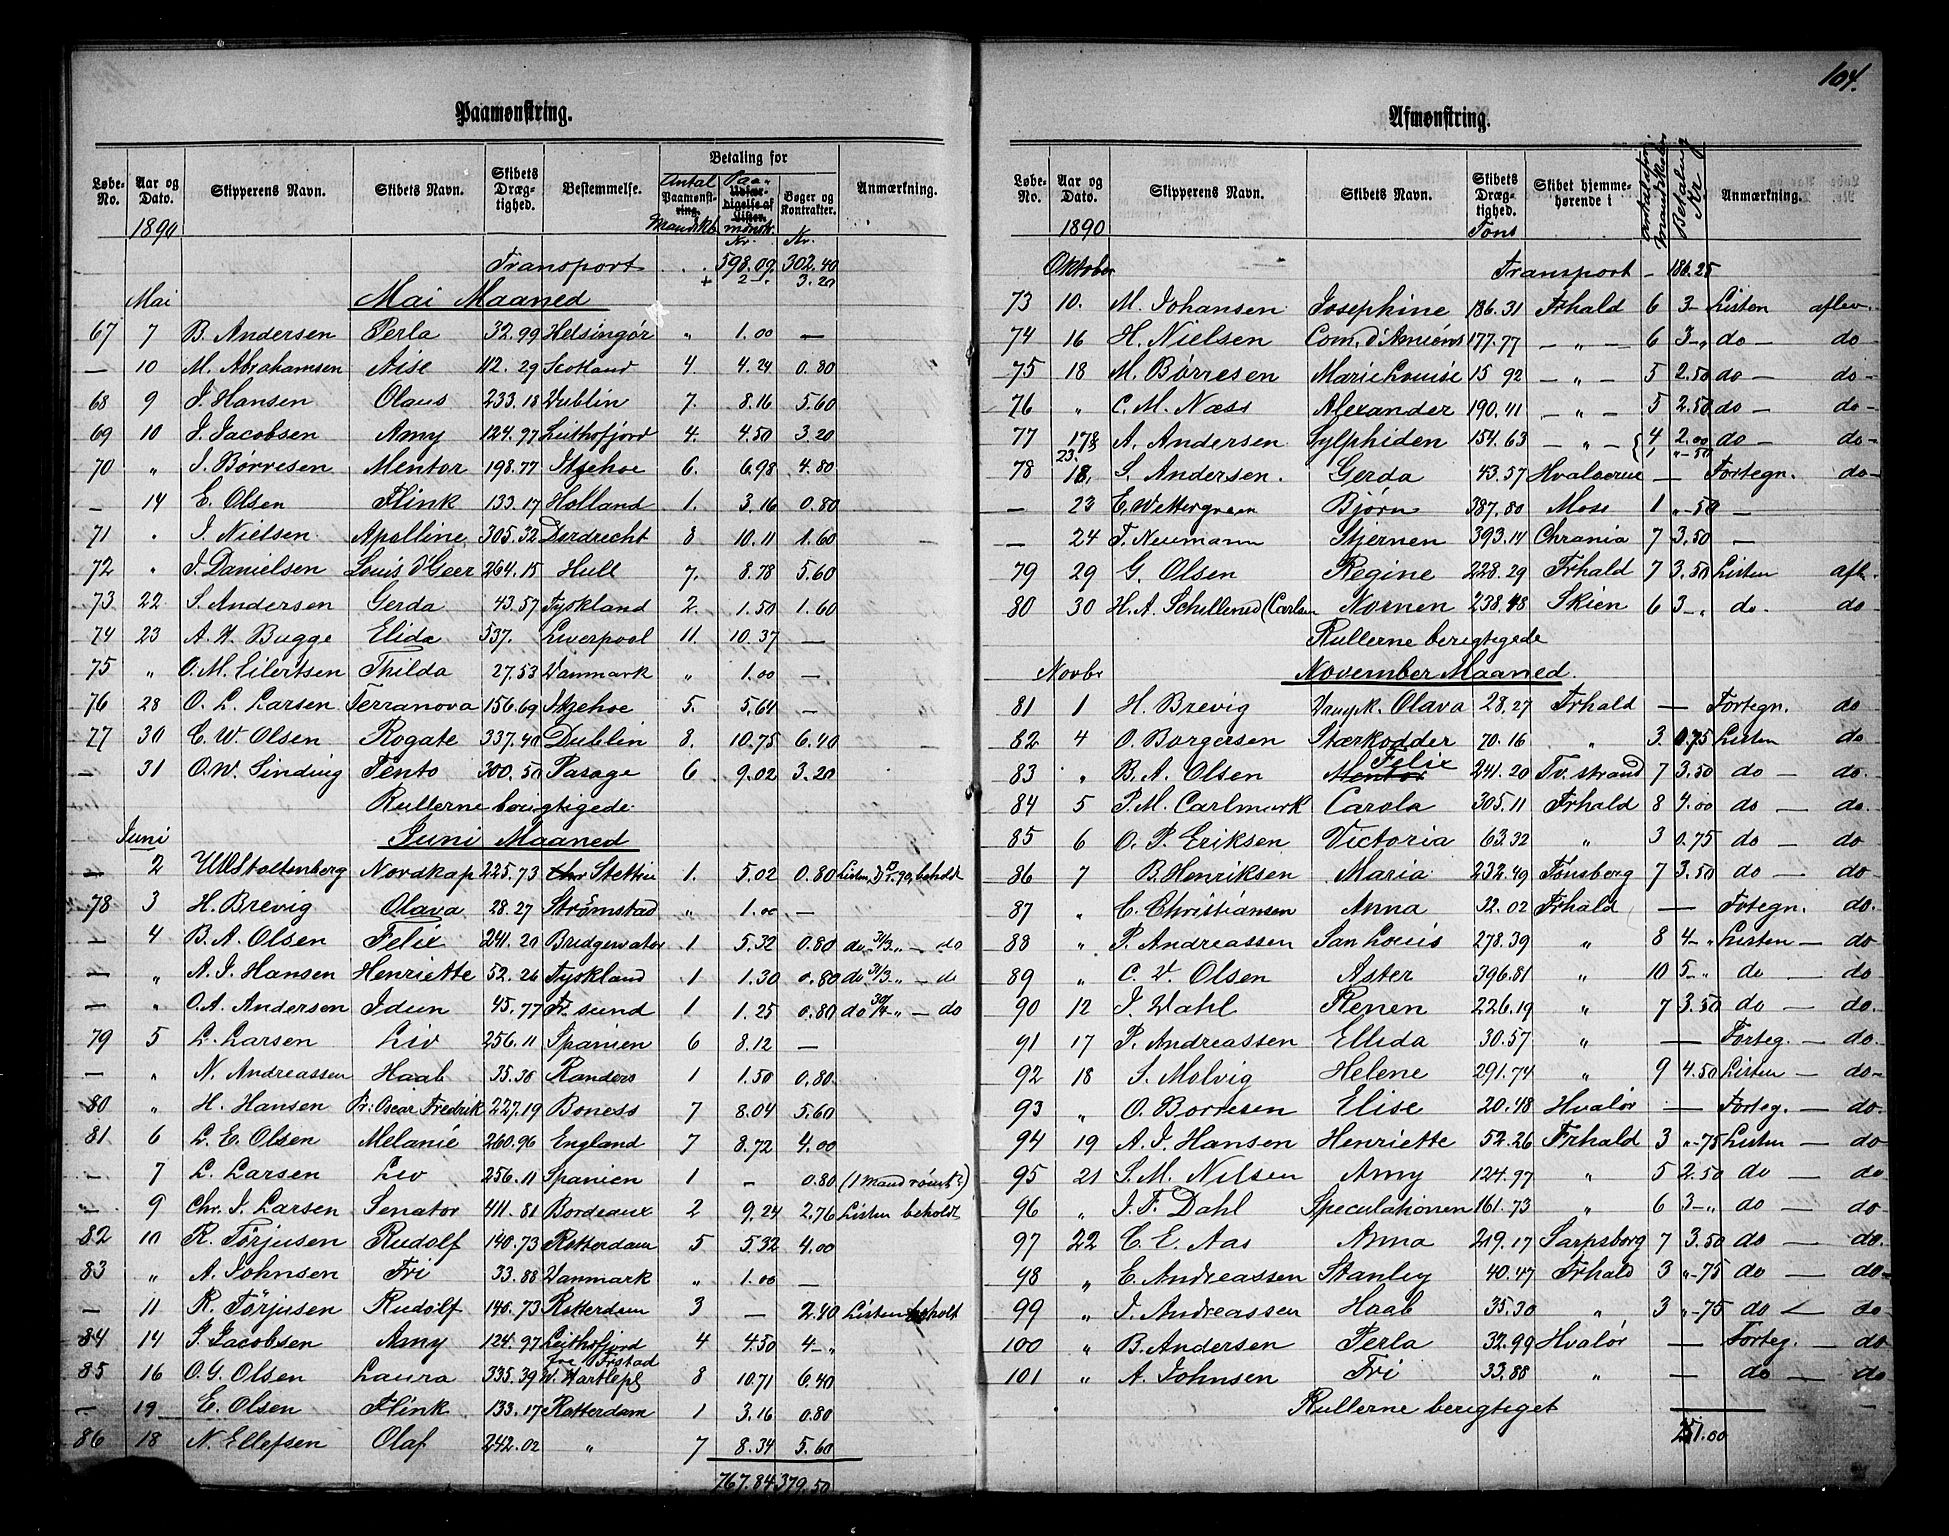 104.
Paamønstring.
Løbe-No. Aar og Dato. 1890 Skipperens Navn. Skibets Navn. Skibets Dræg-tighed. Bestemmelse. Betaling for Antal Paamønst-ring. Mandskb Paa- Udfær-digelse af Lister. mønstr. Kr. Bøger og Kontrakter. Kr. Anmærkning.
Transport 598.09 302.40
+ 2 - . 3.20
Mai Mai Maaned
67 7 B. Andersen Perla 32.99 Helsingør " 1.00 —
— 10 M. Abrahamsen Aise 112.29 Scotland 4 4.24 0.80
68 9 J. Hansen Olaus 233.18 Dublin 7. 8.16 5.60
69 10 J. Jacobsen Amy 124.97 Leithofjord 4. 4.50 3.20
70 " J. Børresen Mentor 198.77 Itzehoe 6. 6.98 4.80
— 14 E. Olsen Flink 133.17 Holland 1. 3.16 0.80
71 " J. Nielsen Apolline 305.32 Dordrecht 8 10.11 1.60
72 " J. Danielsen Louis d'Geer 264.15 Hull 7. 8.78 5.60
73 22 S. Andersen Gerda 43.57 Tyskland 2. 1.50 1.60
74 23 A. H. Bugge Elida 537. Liverpool 11. 10.37 —
75 " O. M. Eilertsen Thilda 27.53 Danmark " 1.00 —
76 28 O. L. Larsen Terranova 156.69 Itzehoe 5. 5.64 —
77 30 C. W. Olsen Rogate 337.40 Dublin 8. 10.75 6.40
— 31 O. W. Sinding Tento 300.50 Pasage 6 9.02 3.20
Rullerne berigtigede
Juni Juni Maaned
— 2 Stoltenberg Nordkap 225.73 Stettin 1. 5.02 0.80 Listen, beholdt
78 3 H. Brevig Olava 28.27 Strømstad " 1.00 —
— 4 B. A. Olsen Felix 241.20 Bridgewater 1 5.32 0.80 do 31/3 " — do
— " A. J. Hansen Henriette 52.26 Tyskland 1 1.30 0.80 do 31/3 " — do
— " O. A. Andersen Idun 45.77 Fr. sund 1 1.25 0.80 do 30/4 " — do
79 5 L. Larsen Liv 256.11 Spanien 6 8.12 —
— " N. Andreassen Haab 35.30 Randers 1 1.50 0.80
80 " H. Hansen Pr: Oscar Fredrik 227.19 Boness 7 8.04 5.60
81 6 L. E. Olsen Melanie 260.96 England 7 8.72 4.00
— 7 L. Larsen Liv 256.11 Spanien 1 — 0.80 (1 Mand rømt)
— 9 Chr. J. Larsen Senator 411.81 Bordeaux 2 9.24 2.76 Listen beholdt
82 10 R. Tørjusen Rudolf 140.73 Rotterdam 5 5.32 4.00
83 " A. Johnsen Fri 33.88 Danmark " 1.00 —
— 11 R. Tørjusen Rudolf 140.73 Rotterdam 3 — 2.40 Listen beholt
84 14 J. Jacobsen Amy 124.97 Leithofjord 4 4.50 4 — "
fra Frstad
85 16 O. G. Olsen Laura 335.39 W. Hartlepl 8 10.71 6.40
— 19 E. Olsen Flink 133.17 Rotterdam 1 3.16 0.80
86 18 N. Ellefsen Olaf 242.02 " 7 8.34 5.60
767.84 379.50
Afmønstring.
Løbe-No. Aar og Dato. 1890 Skipperens Navn. Skibets Navn. Skibets Dræg-tighed. Tons Skibet hjemme-hørende i Mandskaber Betaling Kr Anmærkning.
Oktober Transport — 186.25
73 10. M. Johansen Josephine 186.31 Frhald 6 3 — Listen aflev.
74 16 H. Nielsen Com. d'Amions 177.77 — " — 6 3 — " do — do
75 18 M. Børresen Marie Louise 15 92 — " — 5 2.50 do — do
76 " C. M. Næss Alexander 190.41 — " — 5 2.50 do — do
77 17/23 A. Andersen Sylphiden 154.63 — " — { 4 2.00 do — do
1 " - 50
78 18, S. Andersen. Gerda 43.57 Hvaløerne — — Fortegn. do
— 23 E. Wettergreen Bjørn 387.80 Moss 1 " - 50 —
— 24 T. Neumann Stjernen 393.14 Chrania 7 3.50 —
79 29 G. Olsen Regine 228.29 Frhald 7 3.50 Listen afl.
80 30 H. A. Schillened Nornen 238.48 Skien 6 3 — " do. do
Rullerne berigtigede
Novbr November Maaned.
81 1 H. Brevig Olava 28.27 Frhald — Fortegn. do
82 4 O. Borgersen Stærkodder 70.16 " 3 0.75 Listen do
Felix
83 " B. A. Olsen Mentor 241.20 Tv. strand 7 3.50 do — do
84 5 P. M. Carlmark Carola 305.11 Frhald 8 4.00 do — do
85 6 O. P. Eriksen Victoria 63.32 " 3 0.75 do — do
86 7 B. Henriksen Maria 232.49 Tønsberg 7 3.50 do — do
87 " C. Christiansen Anna 32.02 Frhald — Frtegn. do
88 " P. Andreassen San Louis 278.39 " 8 4 - " Listen — do
89 " C. W. Olsen Aster 396.81 " 10 5 - " do — do
90 12 J. Dahl Renen 226.19 " 7 3.50 do — do
91 17 P. Andreassen Ellida 30.57 " — Forteg. — do
92 18 S. Molvig Helene 291.74 " 9 4.50 Listen — do
93 " O. Borresen Elise 20.48 Hvalør — Forteg. — do
94 19 A. J. Hansen Henriette 52.26 Frhald 3 " - 75 Listen — do
95 21 S. M. Nilsen Amy 124.97 " 5 2.50 do — do
96 " J. F. Dahl Speculationen 161.73 " 6 3 - " do — do
97 22 C. E. Aas Anna 219.17 Sarpsborg 7 3.50 do — do
98 " E. Andreassen Stanley 40.47 Frhald 3 " - 75 do — do
99 " J. Andreassen Haab 35.30 " 3 " - 75 do — do
100 " B. Andersen Perla 32.99 Hvalør — Forteg. — do
101 " A. Johnsen Fri 33.88 " — do — do
Rullerne berigtiget
251.00